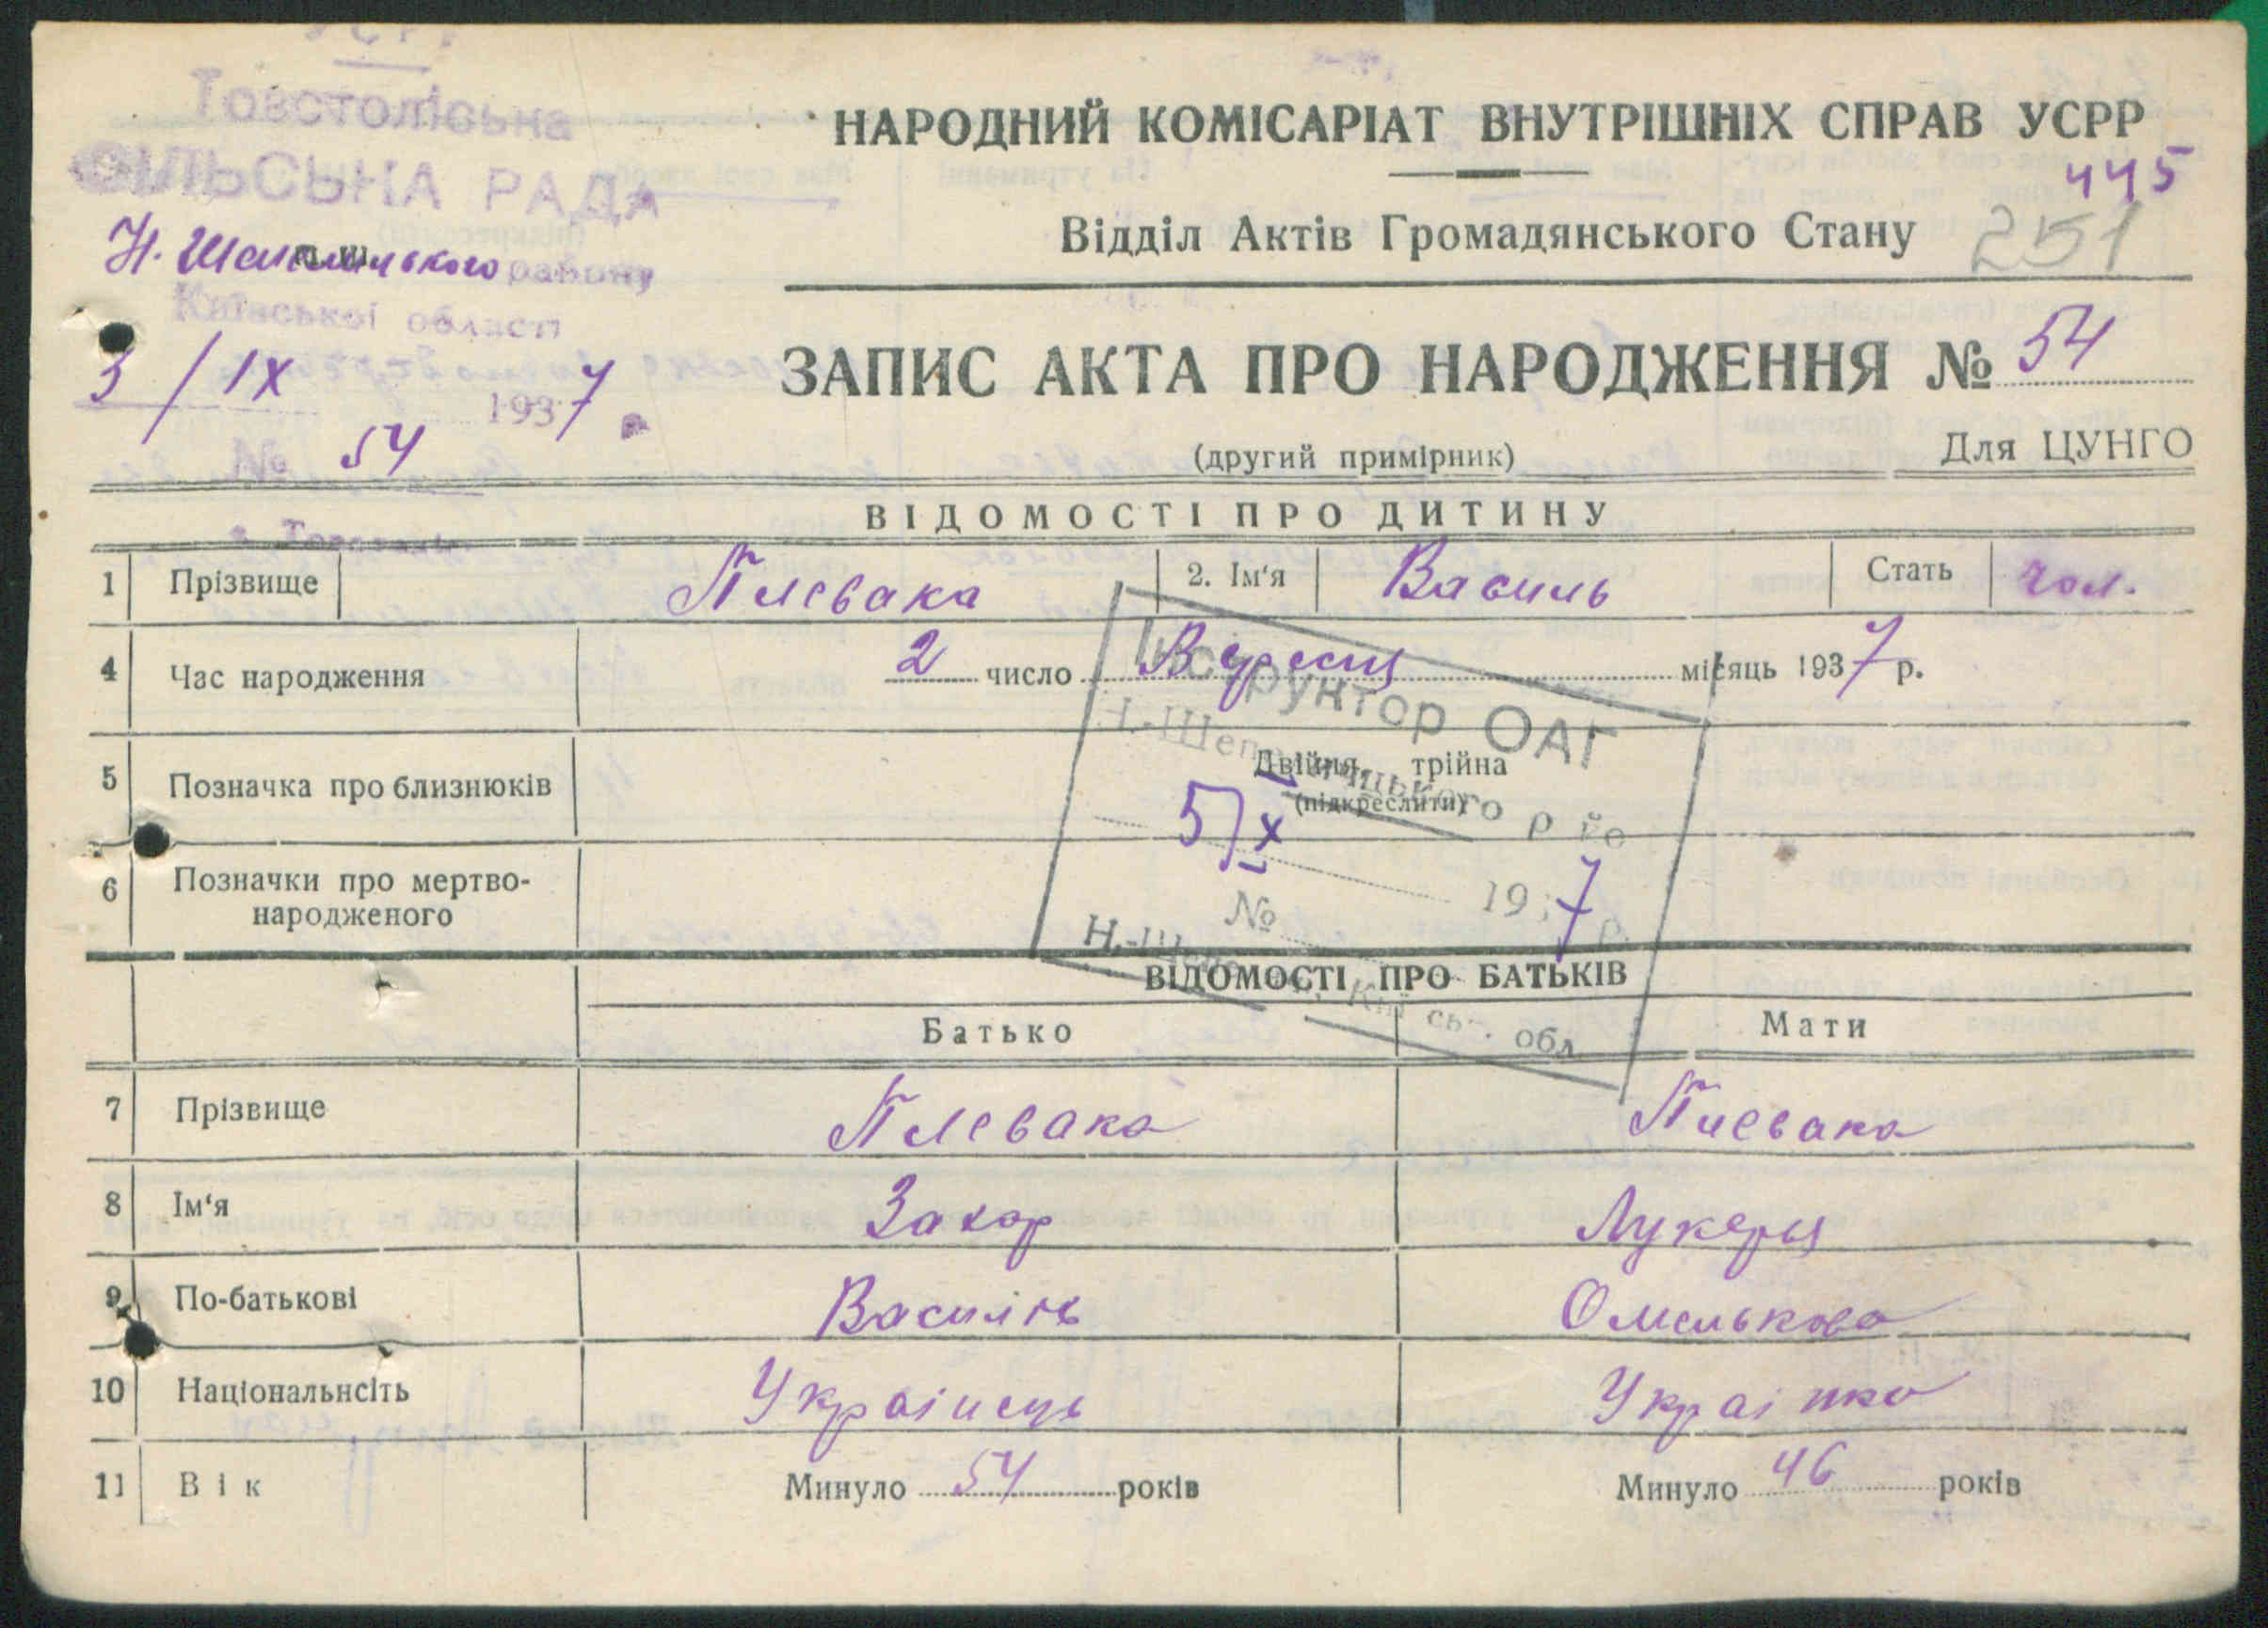 УСРР
Товстоліська
СІЛЬСЬКА РАДА
Н. Шепелицького району
Київської області
3 / IX 1937
№ 54
НАРОДНИЙ КОМІСАРІАТ ВНУТРІШНІХ СПРАВ УСРР
445
Відділ Актів Громадянського Стану 251
ЗАПИС АКТА ПРО НАРОДЖЕННЯ № 54
(другий примірник) Для ЦУНГО
ВІДОМОСТІ ПРО ДИТИНУ
1 Прізвище Плевака 2. Ім'я Василь Стать чол.
4 Час народження 2 число Вересня місяць 1937 р.
Інструктор ОАГ
5 Позначка про близнюків Двійня, трійна
(підкреслити)
5/X
6 Позначки про мертво-
народженого
197 р.
№
ВІДОМОСТІ ПРО БАТЬКІВ
обл
Батько Мати
7 Прізвище Плевака Плевака
8 Ім'я Захар Лукерія
9 По-батькові Василів Омелькова
10 Національнсіть Українець Українка
11 Вік Минуло 54 років Минуло 46 років